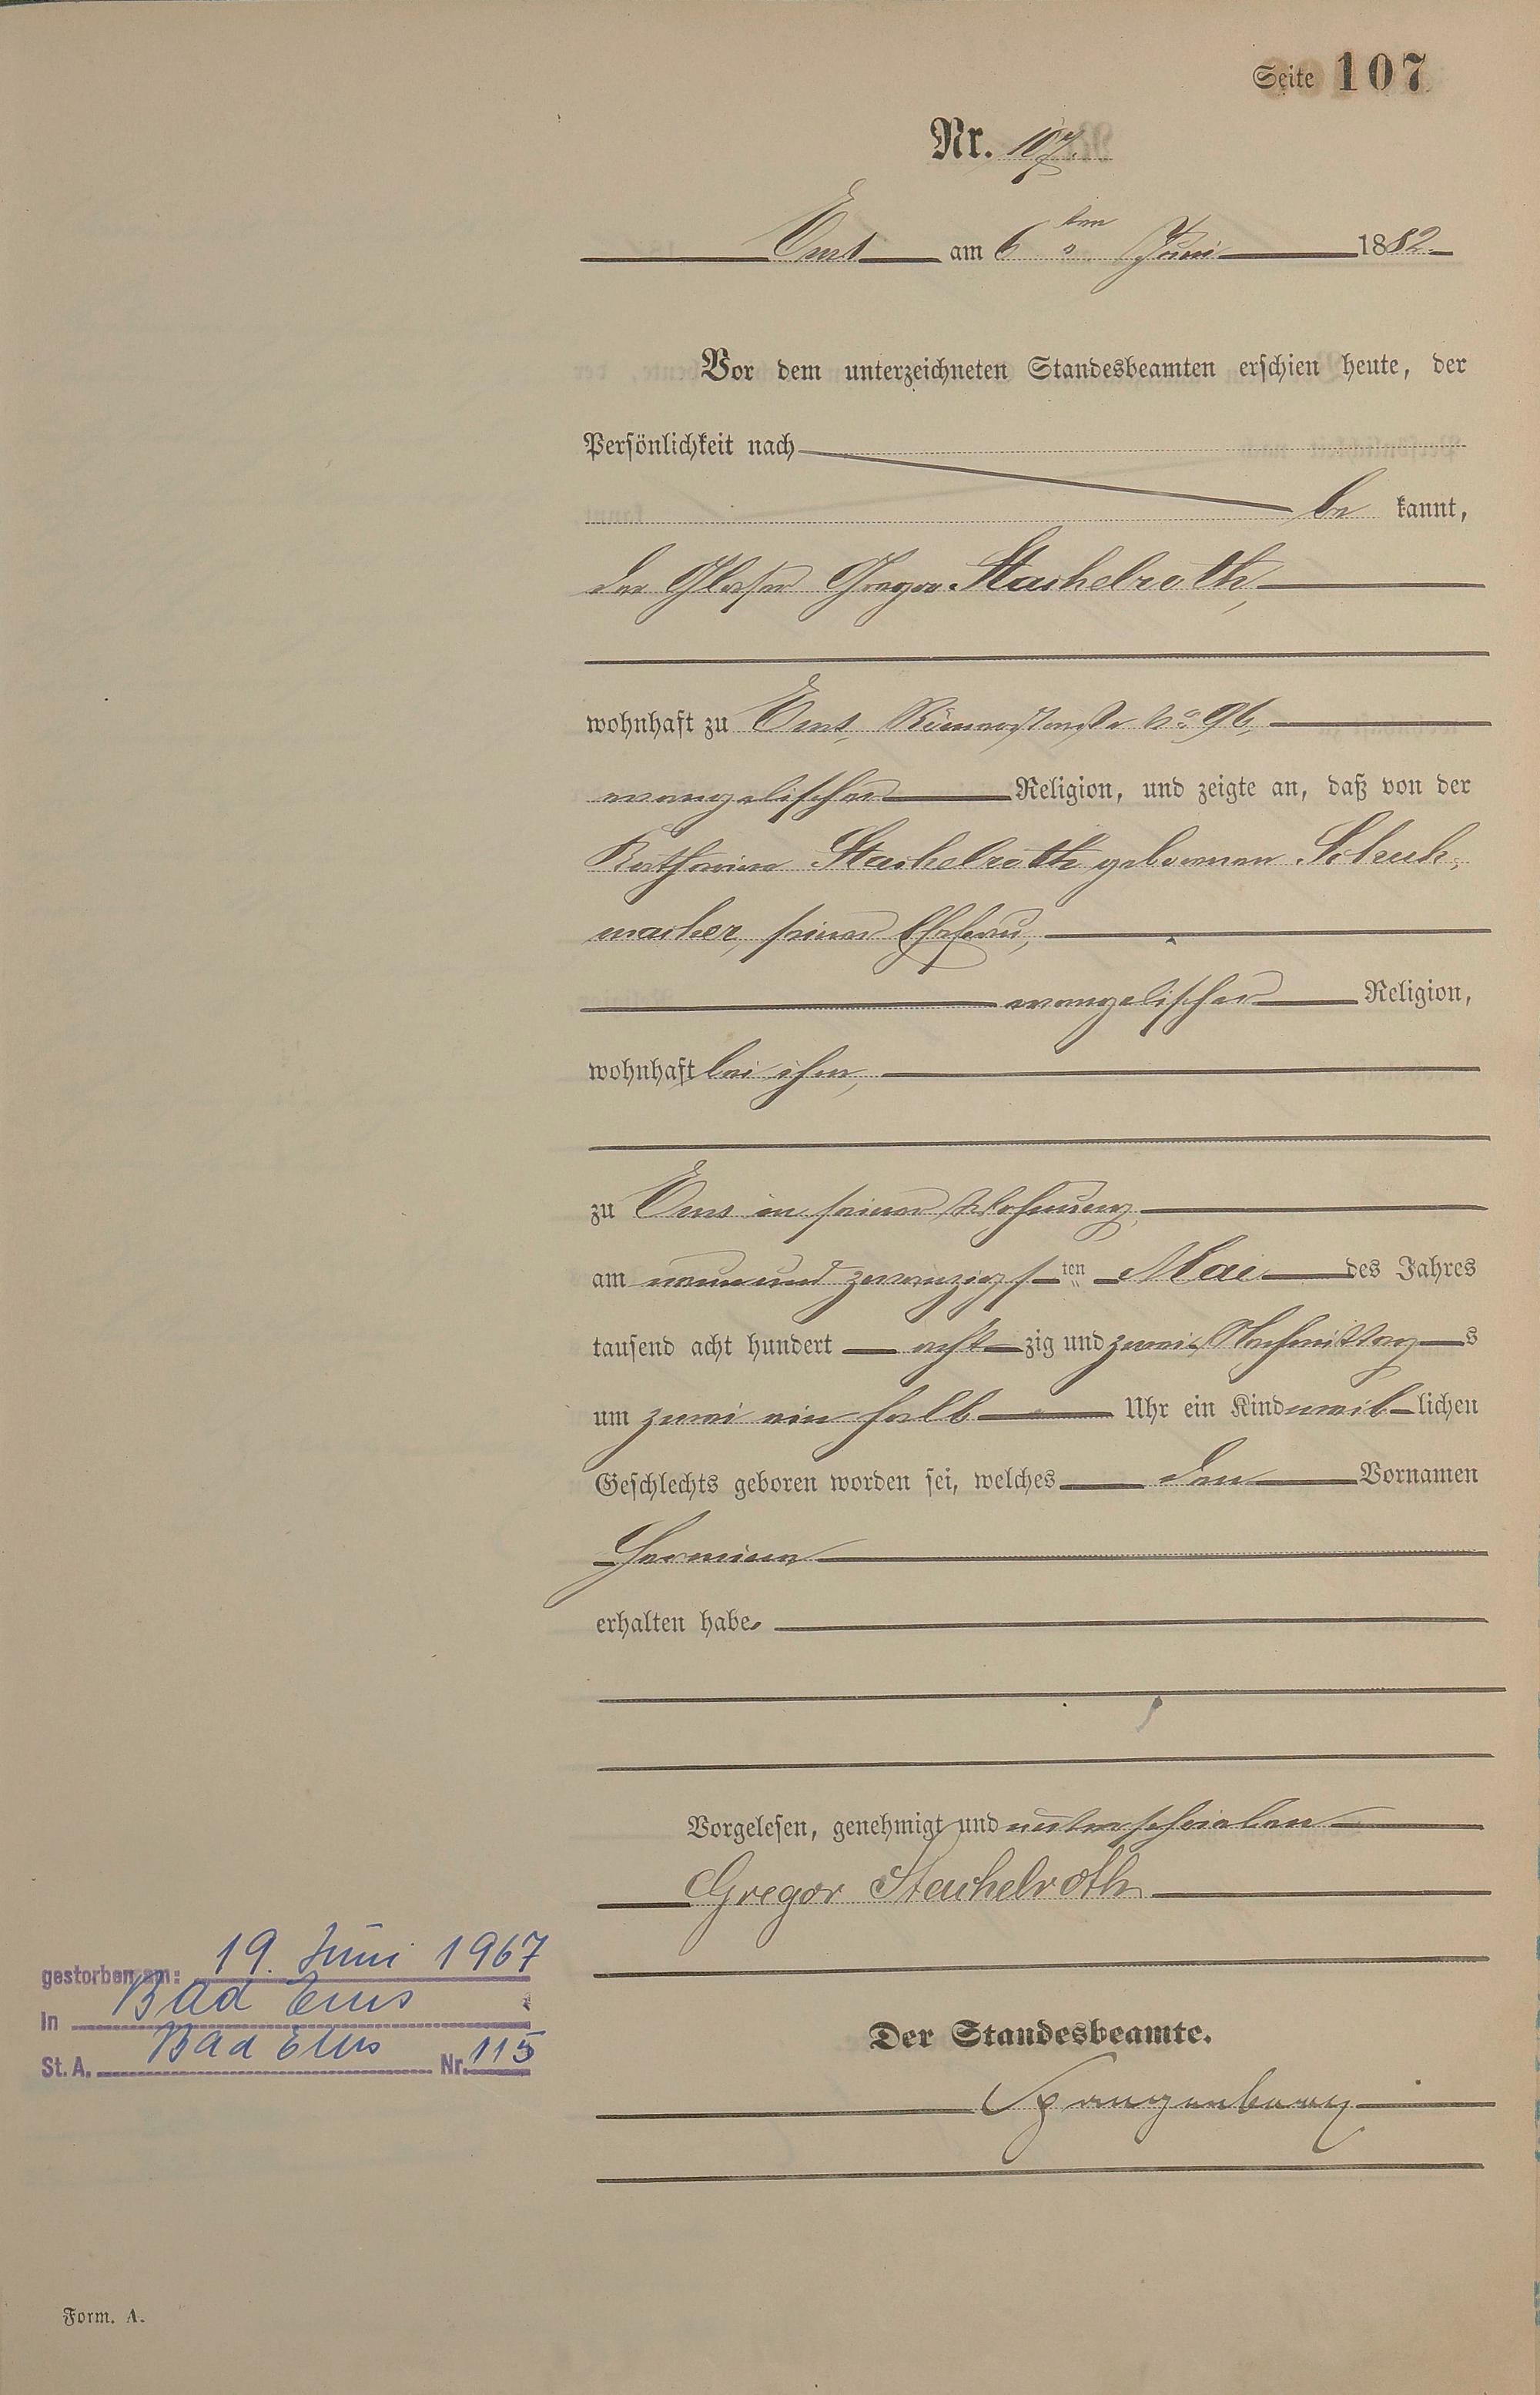 Seite 107
Nr. 107.
Ems am 6ten Juni 1882
Vor dem unterzeichneten Standesbeamten erschien heute, der
Persönlichkeit nach
be kannt,
der Glaser Gregor Stachelroth,
wohnhaft zu Ems, Römerstraße No 96,
evangelischer Religion, und zeigte an, daß von der
Katharina Stachelroth gebornen Schuh-
macher, seiner Ehefrau,
evangelischer Religion,
wohnhaft bei ihm,
zu Ems in seiner Wohnung,
am neunundzwanzigsten Mai des Jahres
tausend acht hundert achtzig und zwei, Nachmittags
um zwei ein halb Uhr ein Kind weiblichen
Geschlechts geboren worden sei, welches den Vornamen
Hermine
erhalten habe.
Vorgelesen, genehmigt und unterschrieben
Gregor Stachelroth
Der Standesbeamte.
Spangenberg
gestorben am: 19. Juni 1967
In Bad Ems
St. A. Bad Ems Nr. 115
Form. A.